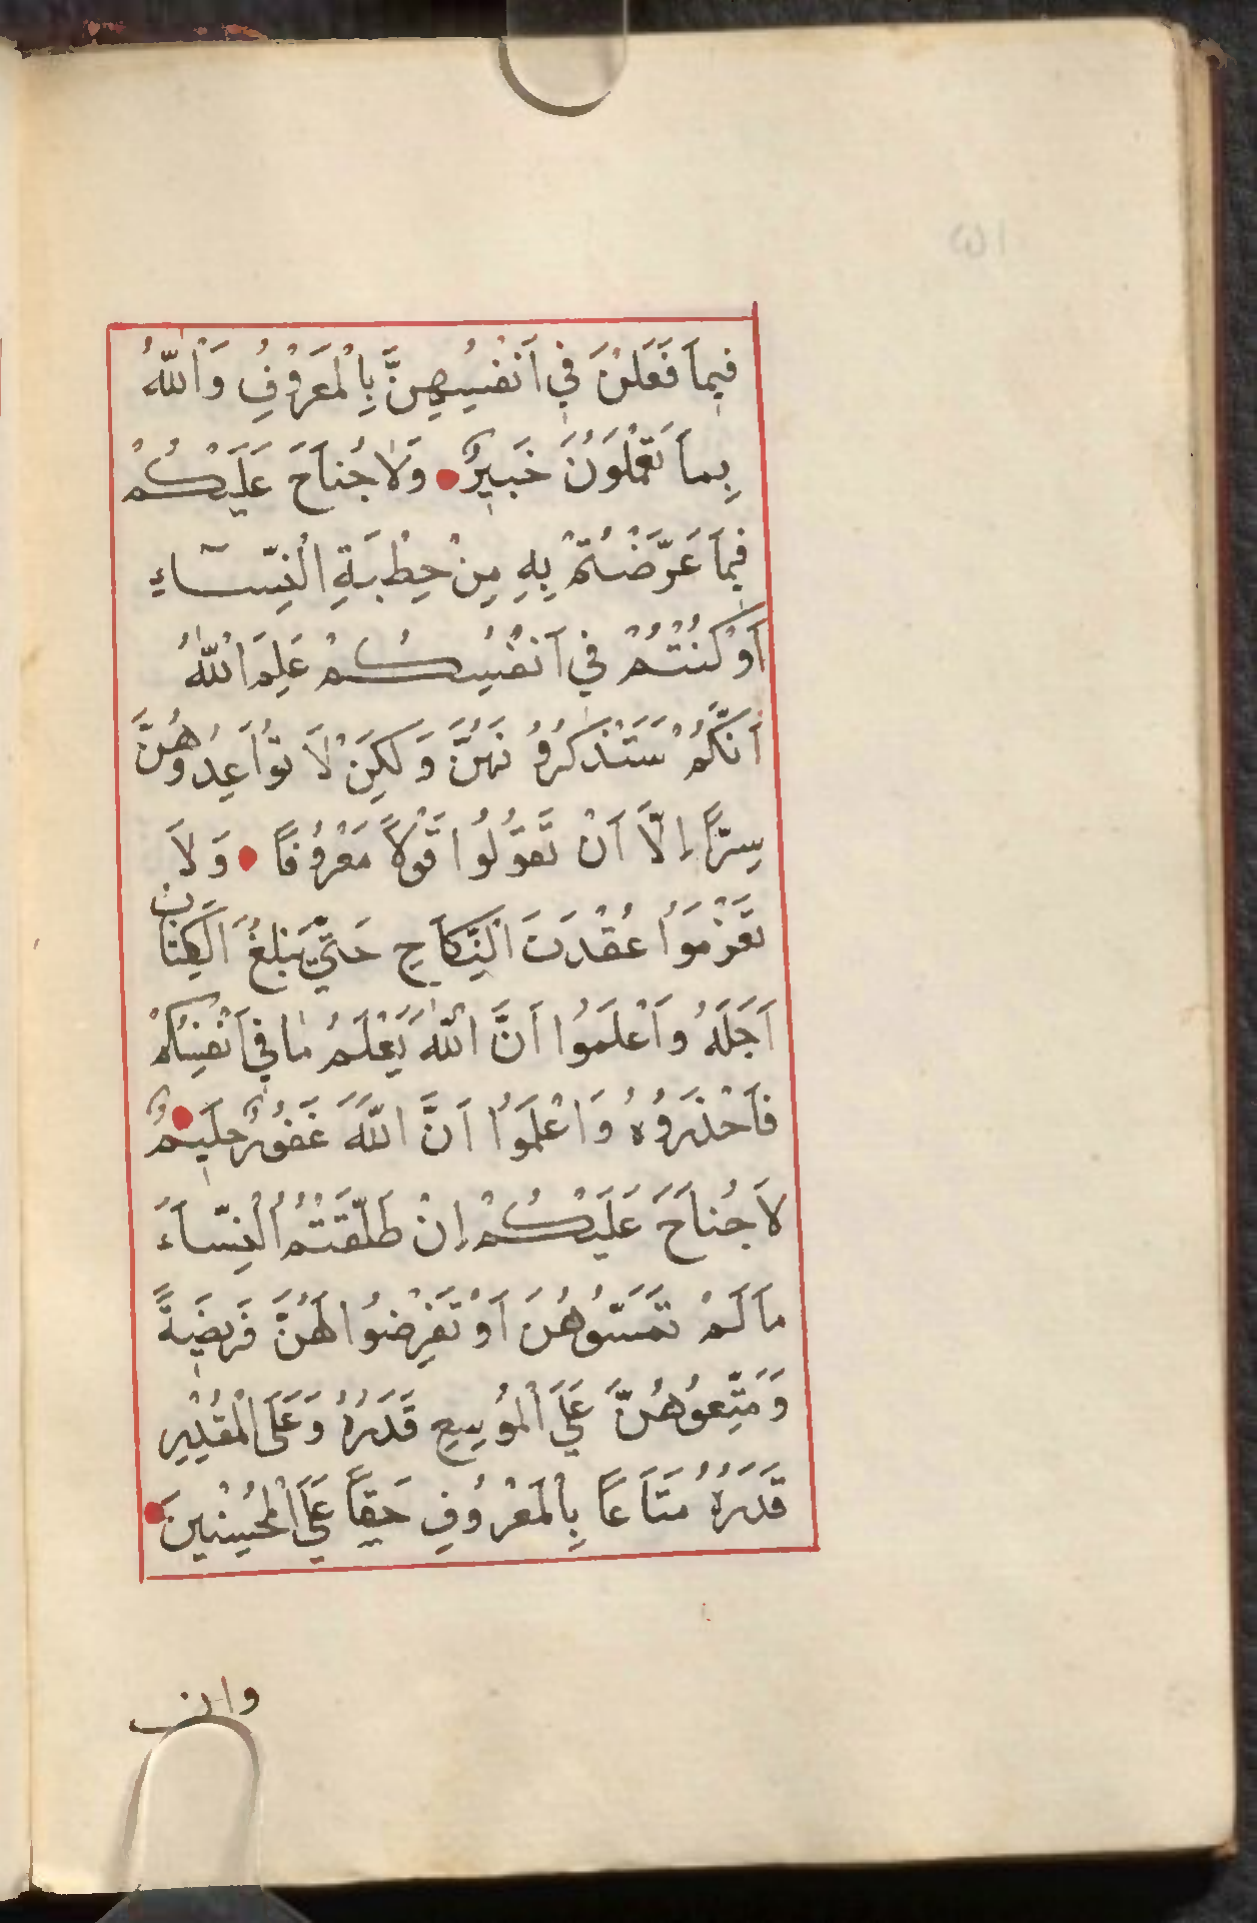 فِيمَا فَعَلْنَ فِي اَنْفُسِهِنَّ بِالْمَعْرُوفِ وَاللّٰهُ
بِمَا تَعْمَلُونَ خَبِيرٌ وَلَا جُنَاحَ عَلَيْكُمْ
فِيمَا عَرَّضْتُمْ بِهِ مِنْ خِطْبَةِ النِّسَاءِ
اَوْ كُنْتُمْ فِي اَنْفُسِكُمْ عَلِمَ اللّٰهُ
اَنَّكُمْ سَتَذْكُرُونَهُنَّ وَلَكِنْ لَا تُوَاعِدُوهُنَّ
سِرًّا اِلَّا اَنْ تَقُولُوا قَوْلًا مَعْرُوفًا وَلَا
تَعْزِمُوا عُقْدَتَ النِّكَاحِ حَتَّي يَبْلُغَ الْكِتَابُ
اَجَلَهُ وَاَعْلَمُوا اَنَّ اللّٰهَ يَعْلَمُ مَا فِي اَنْفُسِكُمْ
فَاَحْذَرُوهُ وَاعْلَمُوا اَنَّ اللّٰهَ غَفُورٌ حَلِيمٌ
لَا جُنَاحَ عَلَيْكُمْ اِنْ طَلَّقْتُمُ النِّسَاءَ
مَا لَمْ تَمَسُّوهُنَ اَوْ تَفْرِضُوا لَهُنَّ فَرِيضَةً
وَمَتِّعُوهُنَّ عَلَي الْمُوسِعِ قَدَرُهُ وَعَلَي الْمُقْتِرِ
قَدَرُهُ مَتَاعًا بِالْمَعْرُوفِ حَقًّا عَلَي الْمُحْسِنِينَ
وان